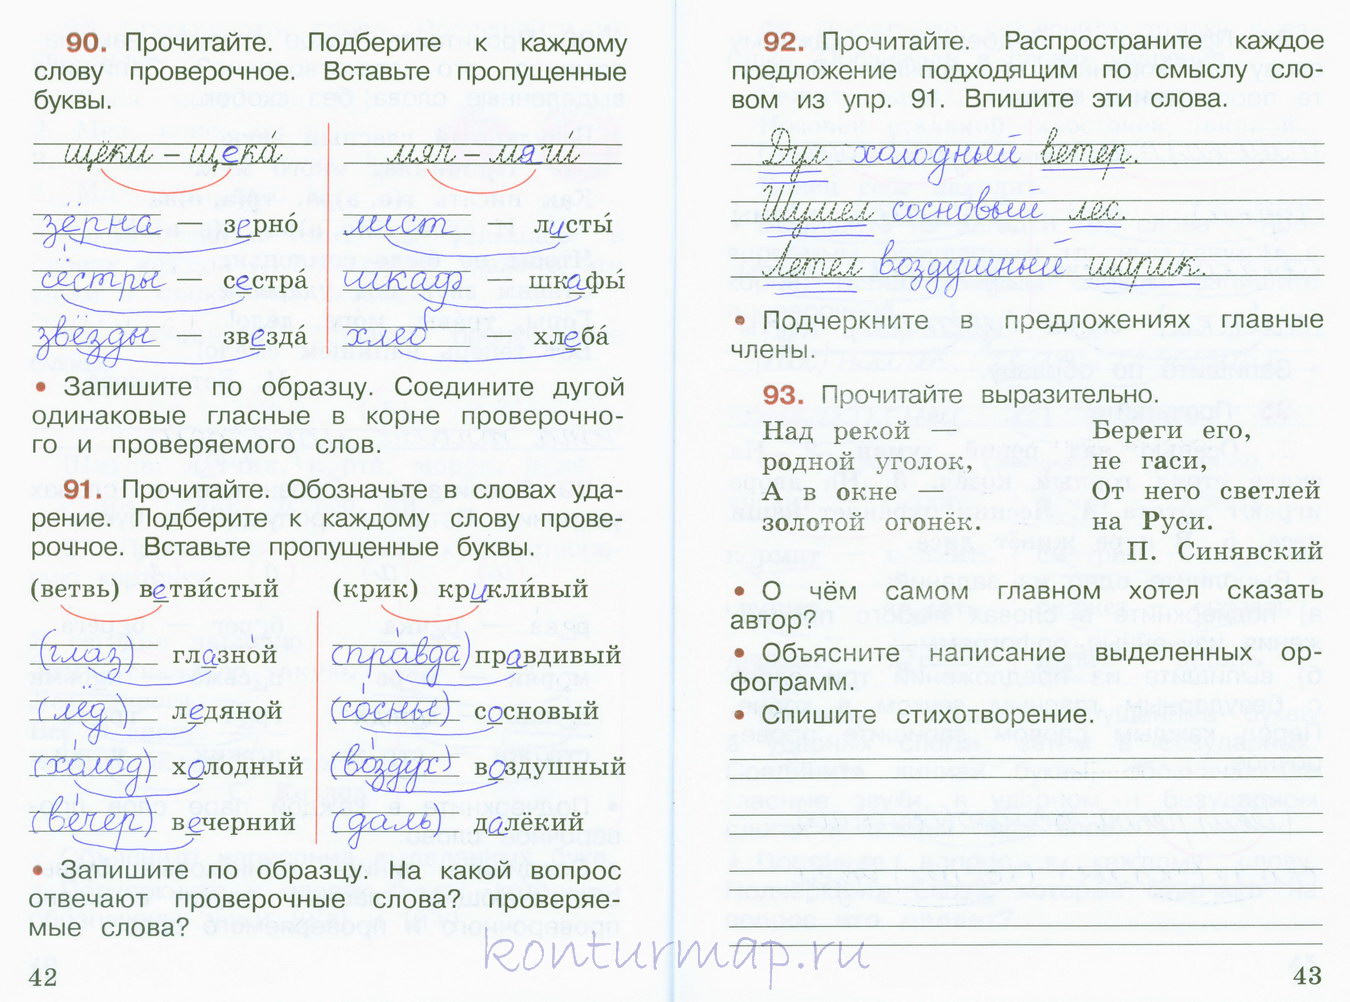 90. Прочитайте. Подберите к каждому
слову проверочное. Вставьте пропущенные
буквы.
щёки – щека́
мяч – мячи
зёрна – зерно́
лист – листы́
сёстры – сестра́
шкаф – шкафы́
звёзды – звезда́
хлеб – хлеба́
• Запишите по образцу. Соедините дугой
одинаковые гласные в корне проверочно-
го и проверяемого слов.
91. Прочитайте. Обозначьте в словах уда-
рение. Подберите к каждому слову прове-
рочное. Вставьте пропущенные буквы.
(ветвь) ветви́стый
(крик) крикли́вый
(глаз) глазной
(правда) правдивый
(лёд) ледяной
(сосны) сосновый
(холод) холодный
(воздух) воздушный
(вечер) вечерний
(даль) далёкий
• Запишите по образцу. На какой вопрос
отвечают проверочные слова? проверяе-
мые слова?
42
92. Прочитайте. Распространите каждое
предложение подходящим по смыслу сло-
вом из упр. 91. Впишите эти слова.
Дул холодный ветер.
Шумел сосновый лес.
Летел воздушный шарик.
• Подчеркните в предложениях главные
члены.
93. Прочитайте выразительно.
Над рекой –
родной уголок,
А в окне
золотой огонёк.
Береги его,
не гаси,
От него светлей
на Руси.
П. Синявский
• О чём самом главном хотел сказать
автор?
• Объясните написание выделенных ор-
фограмм.
• Спишите стихотворение.
43
konturmap.ru